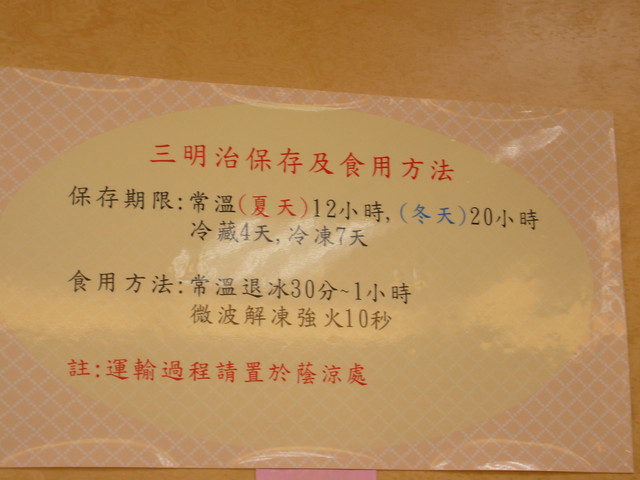 三明治保存及食用方法
保存期限:常溫(夏天)12小時,(冬天)20小時
冷藏4天,冷凍7天
食用方法:常溫退冰30分~1小時
微波解凍強火10秒
註:運輸過程請置於蔭涼處